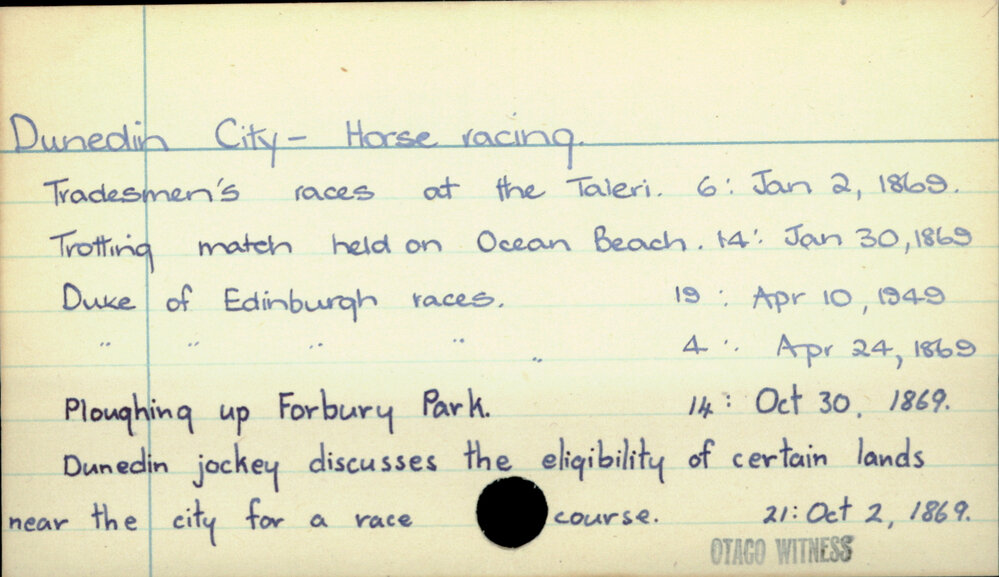 Dunedin City - Horse racing.
Tradesmen's races at the Taieri. 6: Jan 2, 1869.
Trotting match held on Ocean Beach. 14: Jan 30, 1869
Duke of Edinburgh races. 19: Apr 10, 1949
" " " " " 4: Apr 24, 1869
Ploughing up Forbury Park. 14: Oct 30, 1869.
Dunedin jockey discusses the eligibility of certain lands
near the city for a race course. 21: Oct 2, 1869.
OTAGO WITNESS